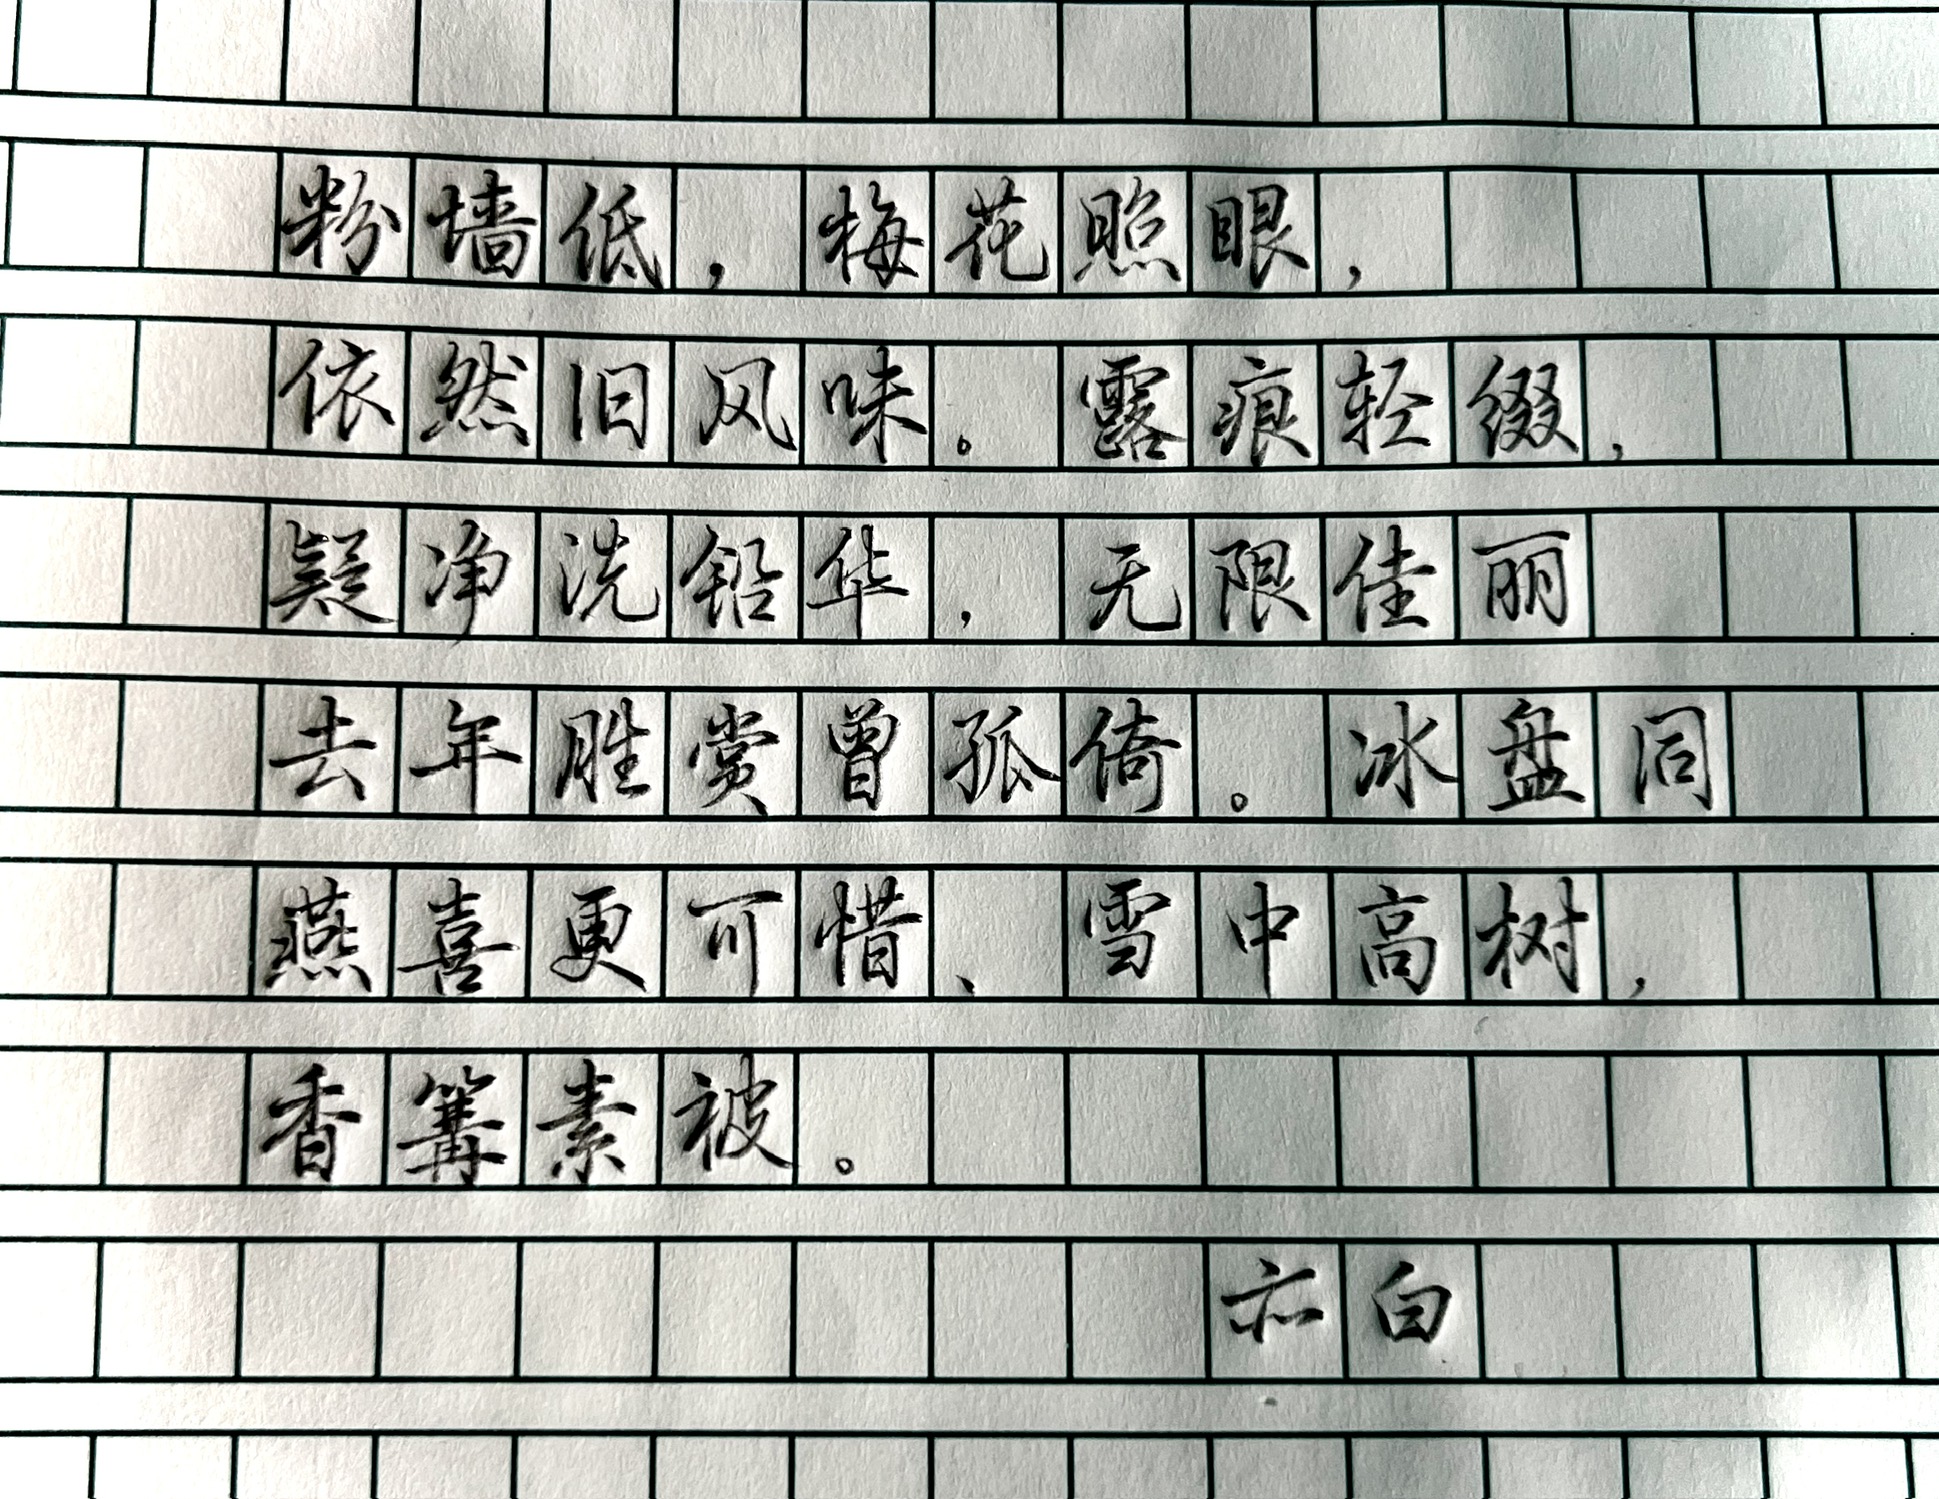 粉墙低，梅花照眼，
依然旧风味。露痕轻缀，
疑净洗铅华，无限佳丽
去年胜赏曾孤倚。冰盘同
燕喜更可惜、雪中高树，
香篝素被。
亦白